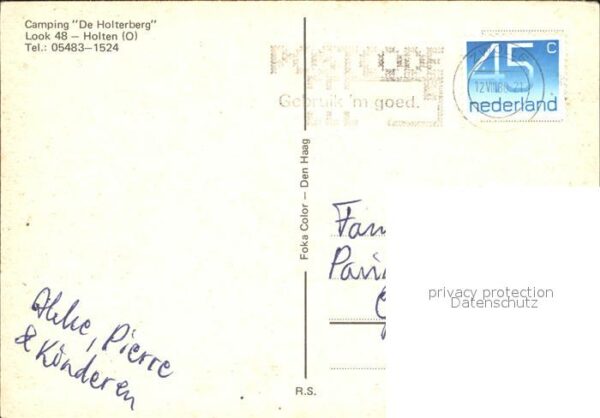 Camping "De Holterberg"
Look 48 — Holten (O)
Tel.: 05483—1524
POSTCODE
Gebruik 'm goed.
45 c
nederland
12 VII 80 21
Foka Color - Den Haag
Fam
privacy protection
Datenschutz
Pierre
& Kinderen
R.S.